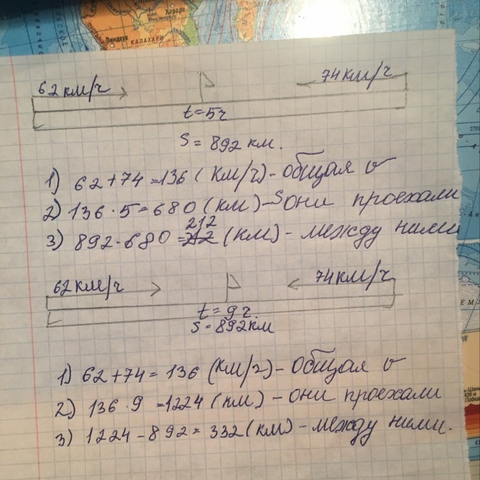 КАЛАХАРИ
62 км/ч 74 км/ч
t=5ч
S = 892 км.
1) 62+74=136 (км/ч)-общая v
2) 136·5=680 (км)-S они проехали
212
3) 892-680=212 (км)-между ними
62 км/ч 74 км/ч
t=9ч.
S=892 км
1) 62+74=136 (км/ч)-общая v
2) 136·9=1224 (км)-они проехали
3) 1224-892=332 (км)-между ними.